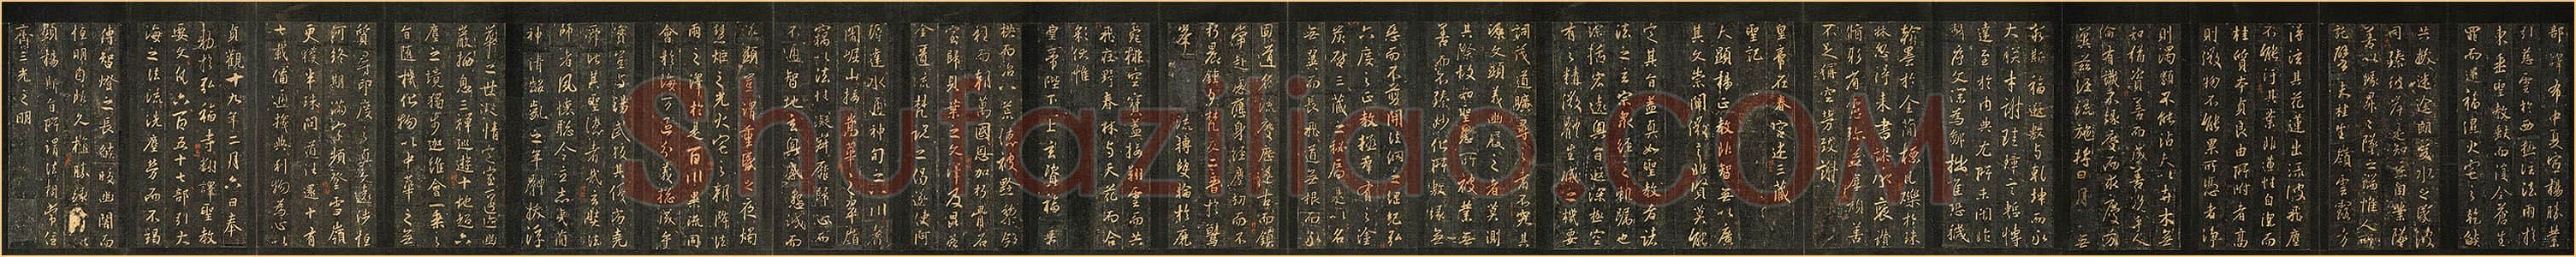 部譯布中夏宣揚勝業
引慈雲於西極注法雨於
東垂聖教缺而復全蒼生
罪而還福濕火宅之乾燄
共拔迷途朗愛水之昏波
同臻彼岸是知惡因業墜
善以緣昇昇墜之端惟人所
託譬夫桂生高嶺雲露方
得泫其花蓮出淥波飛塵
不能汙其葉非蓮性自潔而
桂質本貞良由所附者高
則微物不能累所憑者淨
則濁類不能沾夫以卉木無
知猶資善而成善況乎人
倫有識不緣慶而求慶方
冀茲經流施將日月而無
窮斯福遐敷與乾坤而永
大朕才謝珪璋言慚博
達至於內典尤所未閑昨
制序文深為鄙拙唯恐穢
翰墨於金簡標瓦礫於珠
林忽得來書謬承褒讚
循躬省慮彌益厚顏善
不足稱空勞致謝
皇帝在春宮述三藏
聖記
大顯揚正教非智無以廣
其文崇闡微言非賢莫能
定其旨蓋真如聖教者諸
法之玄宗眾經之軌躅也
綜括宏遠奧旨遐深極空
有之精微體生滅之機要
詞茂道曠尋之者不究其
源文顯義幽履之者莫測
其際故知聖慈所被業無
善而不臻妙化所敷緣無
惡而不翦開法網之綱紀弘
六度之正教拯群有之塗
炭啟三藏之秘扃是以名
無翼而長飛道無根而永
固道名流慶歷遂古而鎮
常赴感應身經塵劫而不
朽晨鐘夕梵交二音於鷲
峯慧日法流轉雙輪於鹿
菀排空寶蓋接翔雲而共
飛莊野春林與天花而合
彩伏惟
皇帝陛下上玄資福垂
拱而治八荒德被黔黎斂
衽而朝萬國恩加朽骨石
室歸貝葉之文澤及昆蟲
金匱流梵說之偈遂使阿
耨達水通神甸之八川耆
闍崛山接嵩華之翠嶺
竊以法性凝寂靡歸心而
不通智地玄奧感懇誠而
遂顯豈謂重昏之夜燭
慧炬之光火宅之朝降法
雨之澤於是百川異流同
會於海萬區分義總成乎
實豈與湯武校其優劣堯
舜比其聖德者哉玄奘法
師者夙懷聰令立志夷簡
神清齠齔之年體拔浮
華之世凝情定室匿跡幽
巖栖息三禪巡遊十地超六
塵之境獨步迦維會一乘之
旨隨機化物以中華之無
質尋印度之真文遠涉恆
河終期滿字頻登雪嶺
更獲半珠問道往還十有
七載備通釋典利物為心以
貞觀十九年二月六日奉
勅於弘福寺翻譯聖教
要文凡六百五十七部引大
海之法流洗塵勞而不竭
傳智燈之長燄皎幽闇而
恆明自非久植勝緣何以
顯揚斯旨所謂法相常住
齊三光之明
Shufaziliao.COM